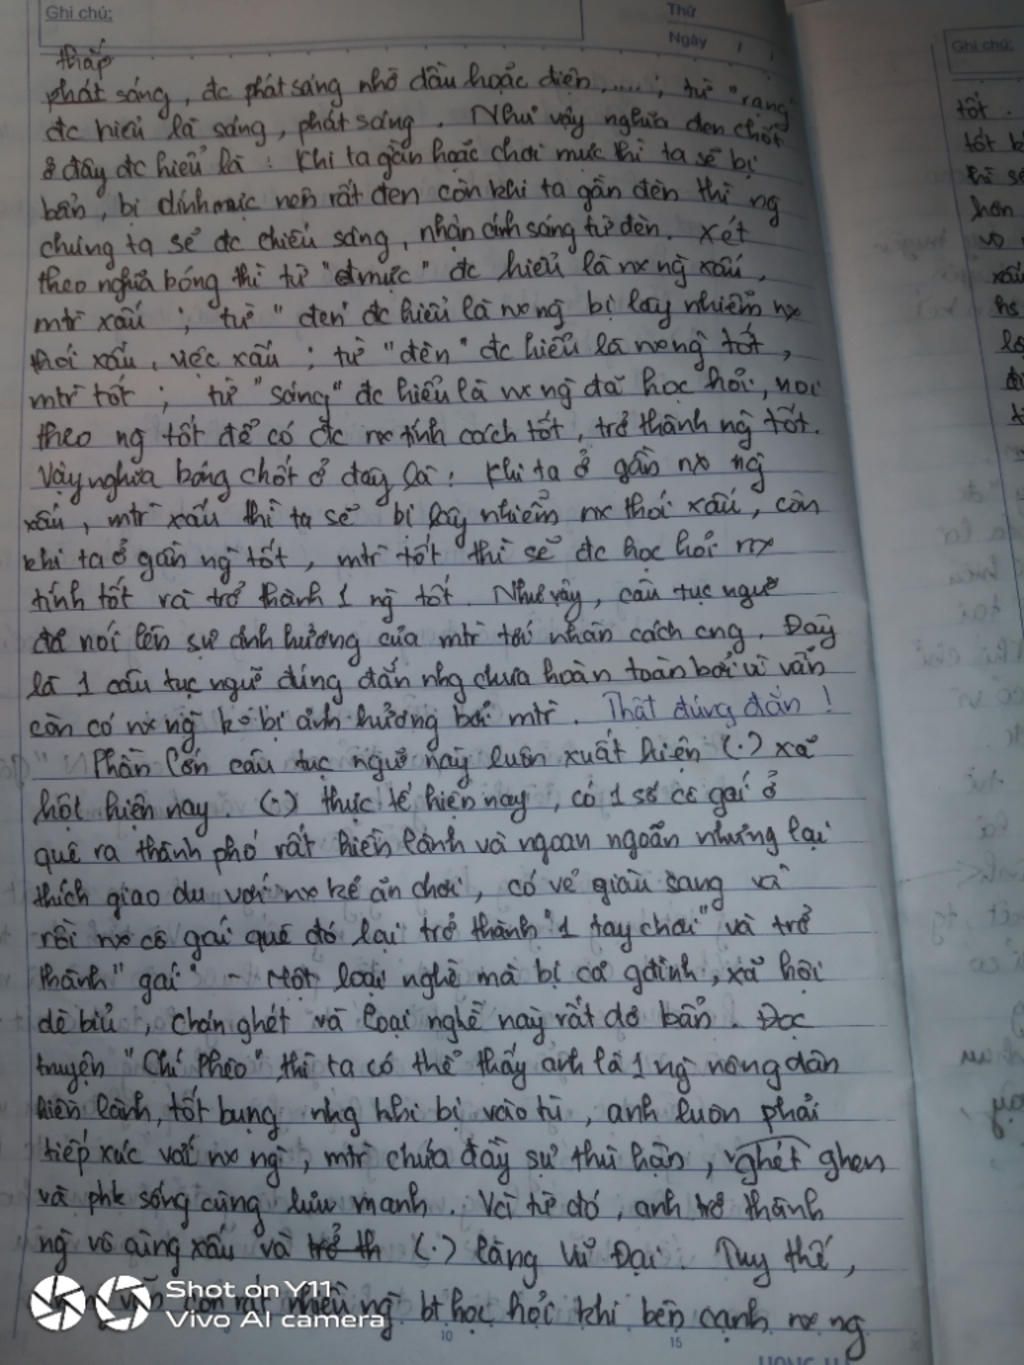 Ghi chú:
Thứ
Ngày
thắp
phát sáng, đc phát sáng nhờ dầu hoặc điện,....; từ "rạng"
đc hiểu là sáng, phát sáng. Như vậy nghĩa đen chốt
ở đây đc hiểu là: Khi ta gần hoặc chơi mực thì ta sẽ bị
bẩn, bị dính mực nên rất đen còn khi ta gần đèn thì ng
chúng ta sẽ đc chiếu sáng, nhận ánh sáng từ đèn. Xét
theo nghĩa bóng thì từ "mực" đc hiểu là nx ng xấu,
mtr xấu; từ "đen" đc hiểu là nx ng bị lây nhiễm nx
thói xấu, việc xấu; từ "đèn" đc hiểu là nx ng tốt,
mtr tốt; từ "sáng" đc hiểu là nx ng đã học hỏi, noi
theo ng tốt để có đc nx tính cách tốt, trở thành ng tốt.
Vậy nghĩa bóng chốt ở đây là: Khi ta ở gần nx ng
xấu, mtr xấu thì ta sẽ bị lây nhiễm nx thói xấu, còn
khi ta ở gần ng tốt, mtr tốt thì sẽ đc học hỏi nx
tính tốt và trở thành 1 ng tốt. Như vậy, câu tục ngữ
đã nói lên sự ảnh hưởng của mtr tới nhân cách cng. Đây
là 1 câu tục ngữ đúng đắn nhg chưa hoàn toàn bởi vì vẫn
còn có nx ng ko bị ảnh hưởng bởi mtr. Thật đúng đắn!
Phần lớn câu tục ngữ này luôn xuất hiện (.) xã
hội hiện nay. (.) thực tế hiện nay, có 1 số cô gái ở
quê ra thành phố rất hiền lành và ngoan ngoãn nhưng lại
thích giao du với nx kẻ ăn chơi, có vẻ giàu sang và
rồi nx cô gái quê đó lại trở thành "1 tay chơi" và trở
thành "gái" - Một loại nghề mà bị cả gđình, xã hội
dè bỉu, chán ghét và loại nghề này rất dơ bẩn. Đọc
truyện "Chí Phèo" thì ta có thể thấy anh là 1 ng nông dân
hiền lành, tốt bụng nhg khi bị vào tù, anh luôn phải
tiếp xúc với nx ng, mtr chứa đầy sự thù hận, ghét ghen
và phk sống cùng lưu manh. Và từ đó, anh trở thành
ng vô cùng xấu và trở th (.) làng Vũ Đại. Tuy thế,
vẫn còn rất nhiều ng bt học hỏi khi bên cạnh nx ng
Shot on Y11
Vivo AI camera
10
15
Ghi chú:
tốt.
tốt
thì
hơn
xấu
hs